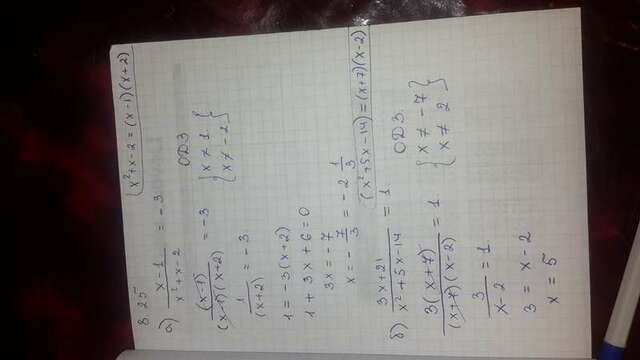 8.25
(x²+x-2 = (x-1)(x+2)
а) x-1 / x²+x-2 = -3
ОДЗ
(x-1) / (x-1)(x+2) = -3
{ x ≠ 1
x ≠ -2 }
1 / (x+2) = -3
1 = -3(x+2)
1 + 3x + 6 = 0
3x = -7
x = - 7/3 = -2 1/3
(x²+5x-14) = (x+7)(x-2)
б) 3x+21 / x²+5x-14 = 1
ОДЗ.
3(x+7) / (x+7)(x-2) = 1
{ x ≠ -7
x ≠ 2 }
3 / x-2 = 1
3 = x-2
x = 5